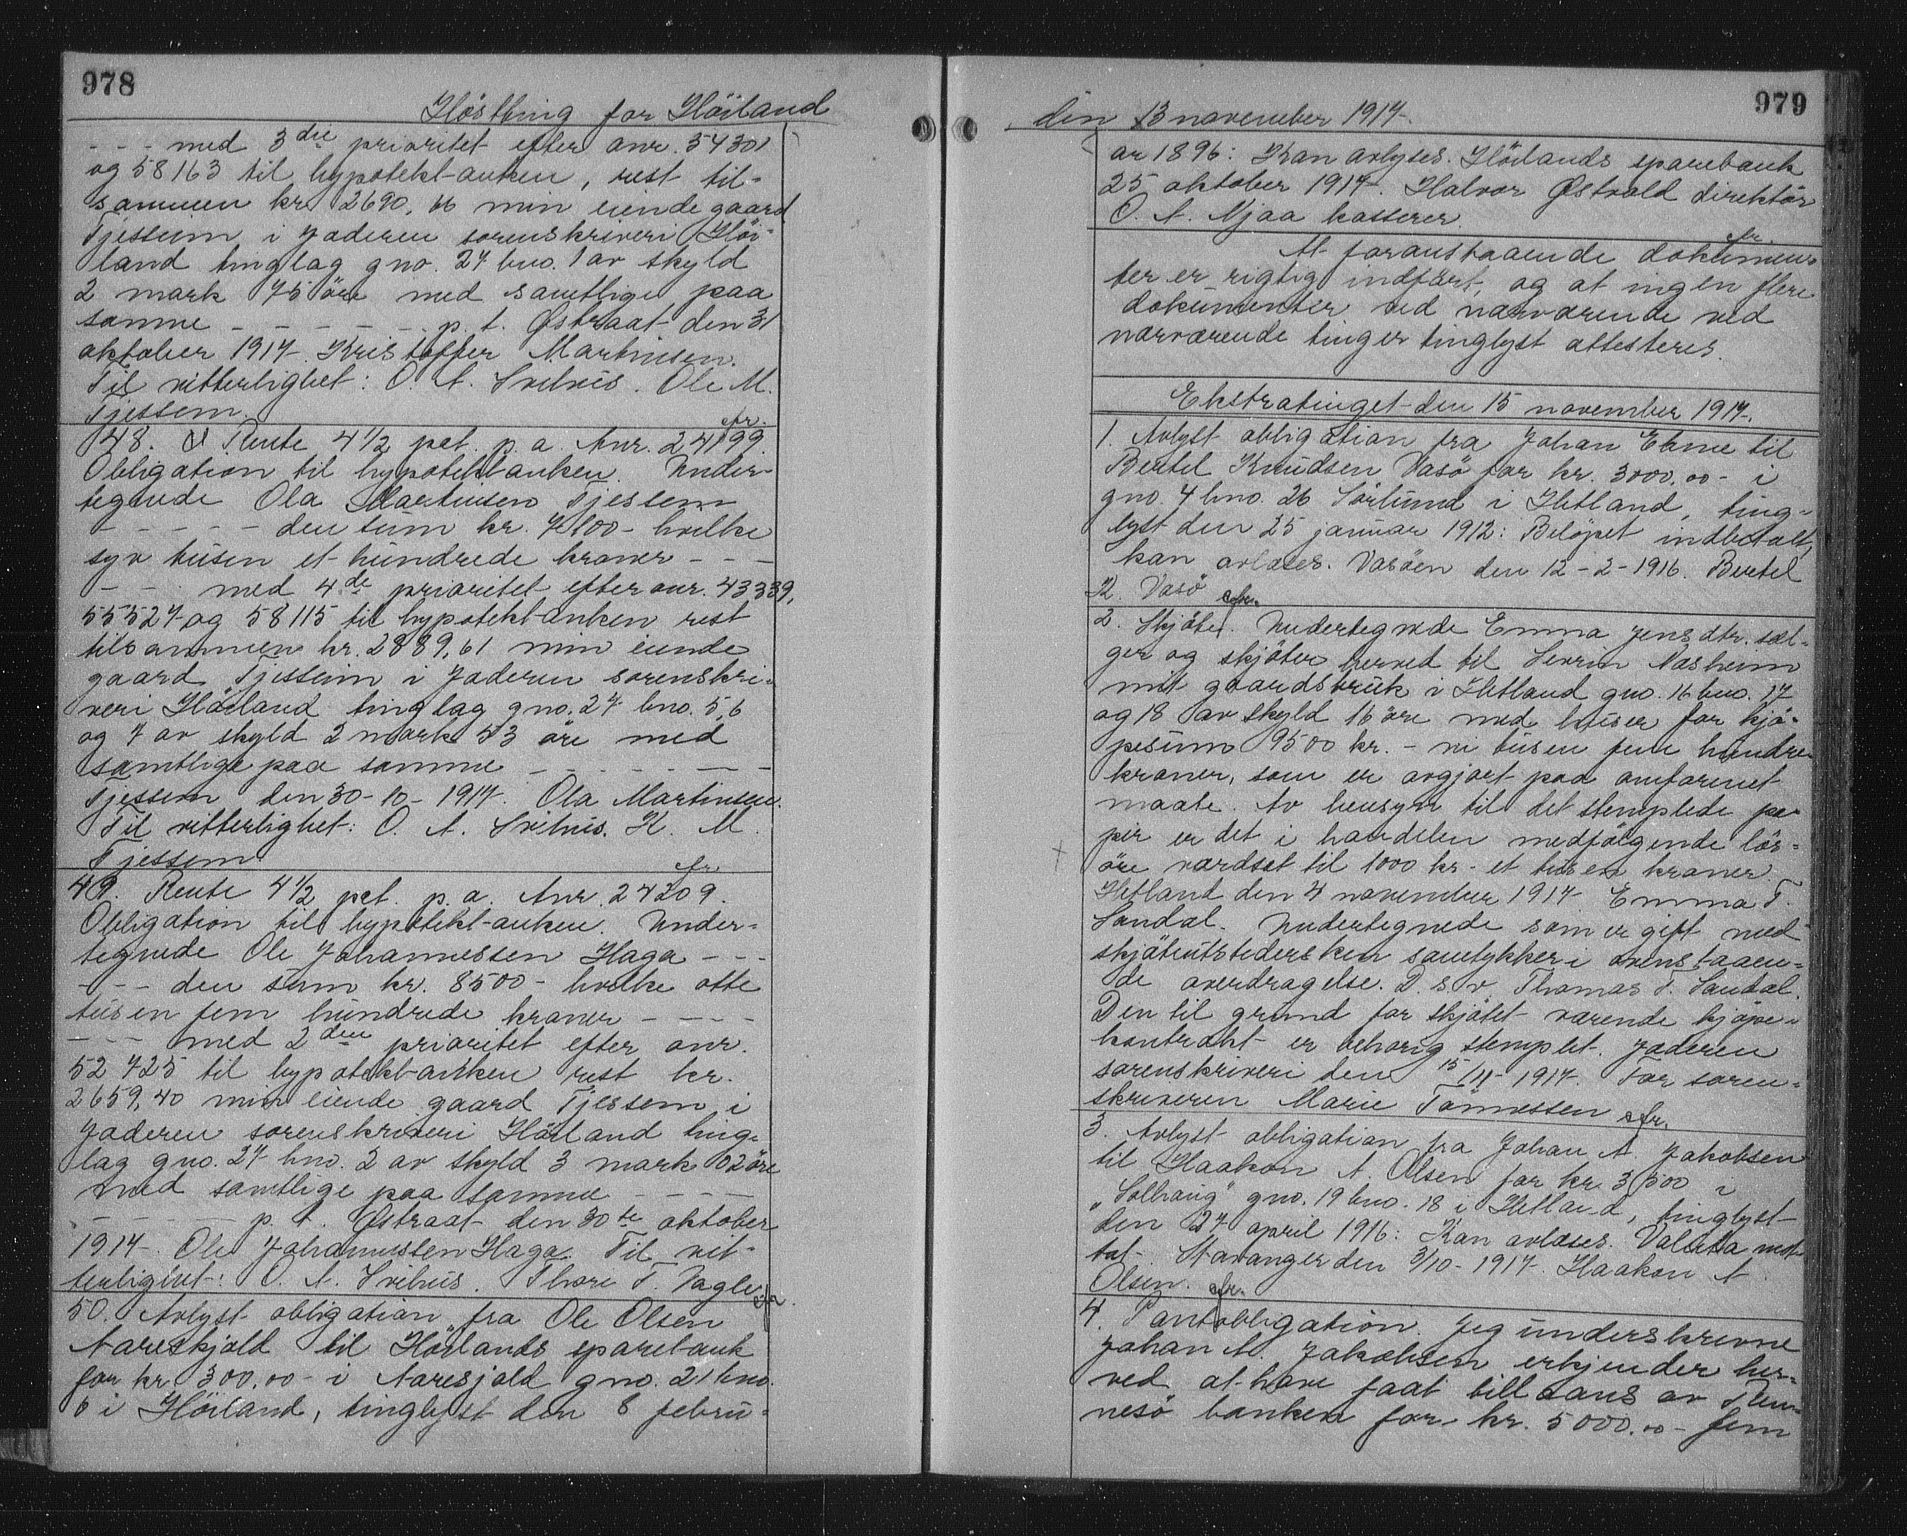 978
Høstting for Höiland
- - - med 3die prioritet efter anr. 54301
og 58163 til hypotekbanken, rest til-
sammen kr. 2690, 66 min eiende gaard
Tjesseim i Jæderen sorenskriveri Höi-
land tinglag gno. 27 bno. 1 av skyld
2 mark 75 öre med samtlige paa
samme - - - - - p. t. Østraat den 31
oktober 1917. Kristoffer Martinsen.
Til vitterlighet: O. A. Svihus. Ole M.
Tjessem. efr.
48. Rente 4 1/2 pct. p. a Anr. 24199.
Obligation til hypotekbanken. Under-
tegnede Ola Martinsen Tjessem
- - - - - den sum kr. 7100 - hvilke
syv tusen et hundrede kroner - - -
- - med 4de prioritet efter anr. 43339,
55527 og 58115 til hypotekbanken rest
tilsammen kr. 2889,61 min eiende
gaard Tjessem i Jæderen sorenskri-
veri Höiland tinglag gno. 27 bno. 5,6
og 7 av skyld 2 mark 53 öre med
samtlige paa samme - - - - - -
Tjessem den 30-10-1917. Ola Martinsen.
Til vitterlighet: O. A. Svihus. K. M.
Tjessem. efr.
49. Rente 4 1/2 pct. p. a. Anr. 24209.
Obligation til hypotekbanken. Under-
tegnede Ole Johannessen Haga - - -
- - - den sum kr. 8500 - hvilke otte
tusen fem hundrede kroner - - - -
- - - med 2den prioritet efter anr.
52725 til hypotekbanken rest kr.
2659,40 min eiende gaard Tjessem i
Jæderen sorenskriveri Höiland ting-
lag gno. 27 bno. 2 av skyld 3 mark 02 öre
med samtlige paa samme - - - -
- - - - - p. t. Østraat den 30te oktober
1917. Ole Johannessen Haga. Til vit-
terlighet: O. A. Svihus. Thore T. Vagle. efr.
50. Avlyst obligation fra Ole Olsen
Aareskjold til Höilands sparebank
for kr. 300,00 - i Aaresjold gno. 21 bno.
6 i Höiland, tinglyst den 8 febru-
979
den 13 november 1917.
ar 1896: Kan avlyses. Höilands sparebank
25 oktober 1917. Halvor Østvold direktör
O. A. Njaa kasserer. efr.
At foranstaaende dokumen-
ter er rigtig indfört, og at ingen flere
dokumenter ved nærværende ved
nærværende ting er tinglyst attesteres.
Ekstratinget den 15 november 1917.
1. Avlyst obligation fra Johan Ehme til
Bertel Knudsen Vasö for kr. 3000,00 - i
gno. 4 bno. 26 Sörlund i Hetland, ting-
lyst den 25 januar 1912: Belöpet indbetalt,
kan avlæses. Vasöen den 12-2-1916. Bertel
K. Vasö efr.
2. Skjöte. Undertegnede Emma Jensdtr. sæl-
ger og skjöter herved til Severin Næsheim
mit gaardsbruk i Hetland gno. 16 bno. 17
og 18 av skyld 16 öre med huser for kjö-
pesum 9500 kr. - ni tusen fem hundre
kroner, som er avgjort paa omforenet
maate. Av hensyn til det stemplede pa-
pir er det i handelen medfölgende lös-
öre værdsat til 1000 kr - et tusen kroner.
Hetland den 4 november 1917 Emma T.
Sandal. Undertegnede som er gift med
skjöteutstedersken samtykker i ovenstaaen-
de overdragelse. D. s. v. Thomas T. Sandal.
Den til grund for skjötet værende kjöpe-
kontrakt er behörig stemplet. Jæderen
sorenskriveri den 15/11 1917. For soren-
skriveren Marie Tönnessen efr.
3. Avlyst obligation fra Johan A. Jakobsen
til Haakon A. Olsen for kr. 3500 i
„Solhaug" gno. 19 bno. 18 i Hetland, tinglyst
den 27 april 1916: Kan avlæses. Valuta mot-
tat. Stavanger den 3/10 - 1917. Haakon A
Olsen. efr.
4. Pantobligation. Jeg underskrevne
Johan A. Jakobsen erkjender her-
ved at have faat tillaans av Ren-
nesö banken for kr. 5000.00 - fem